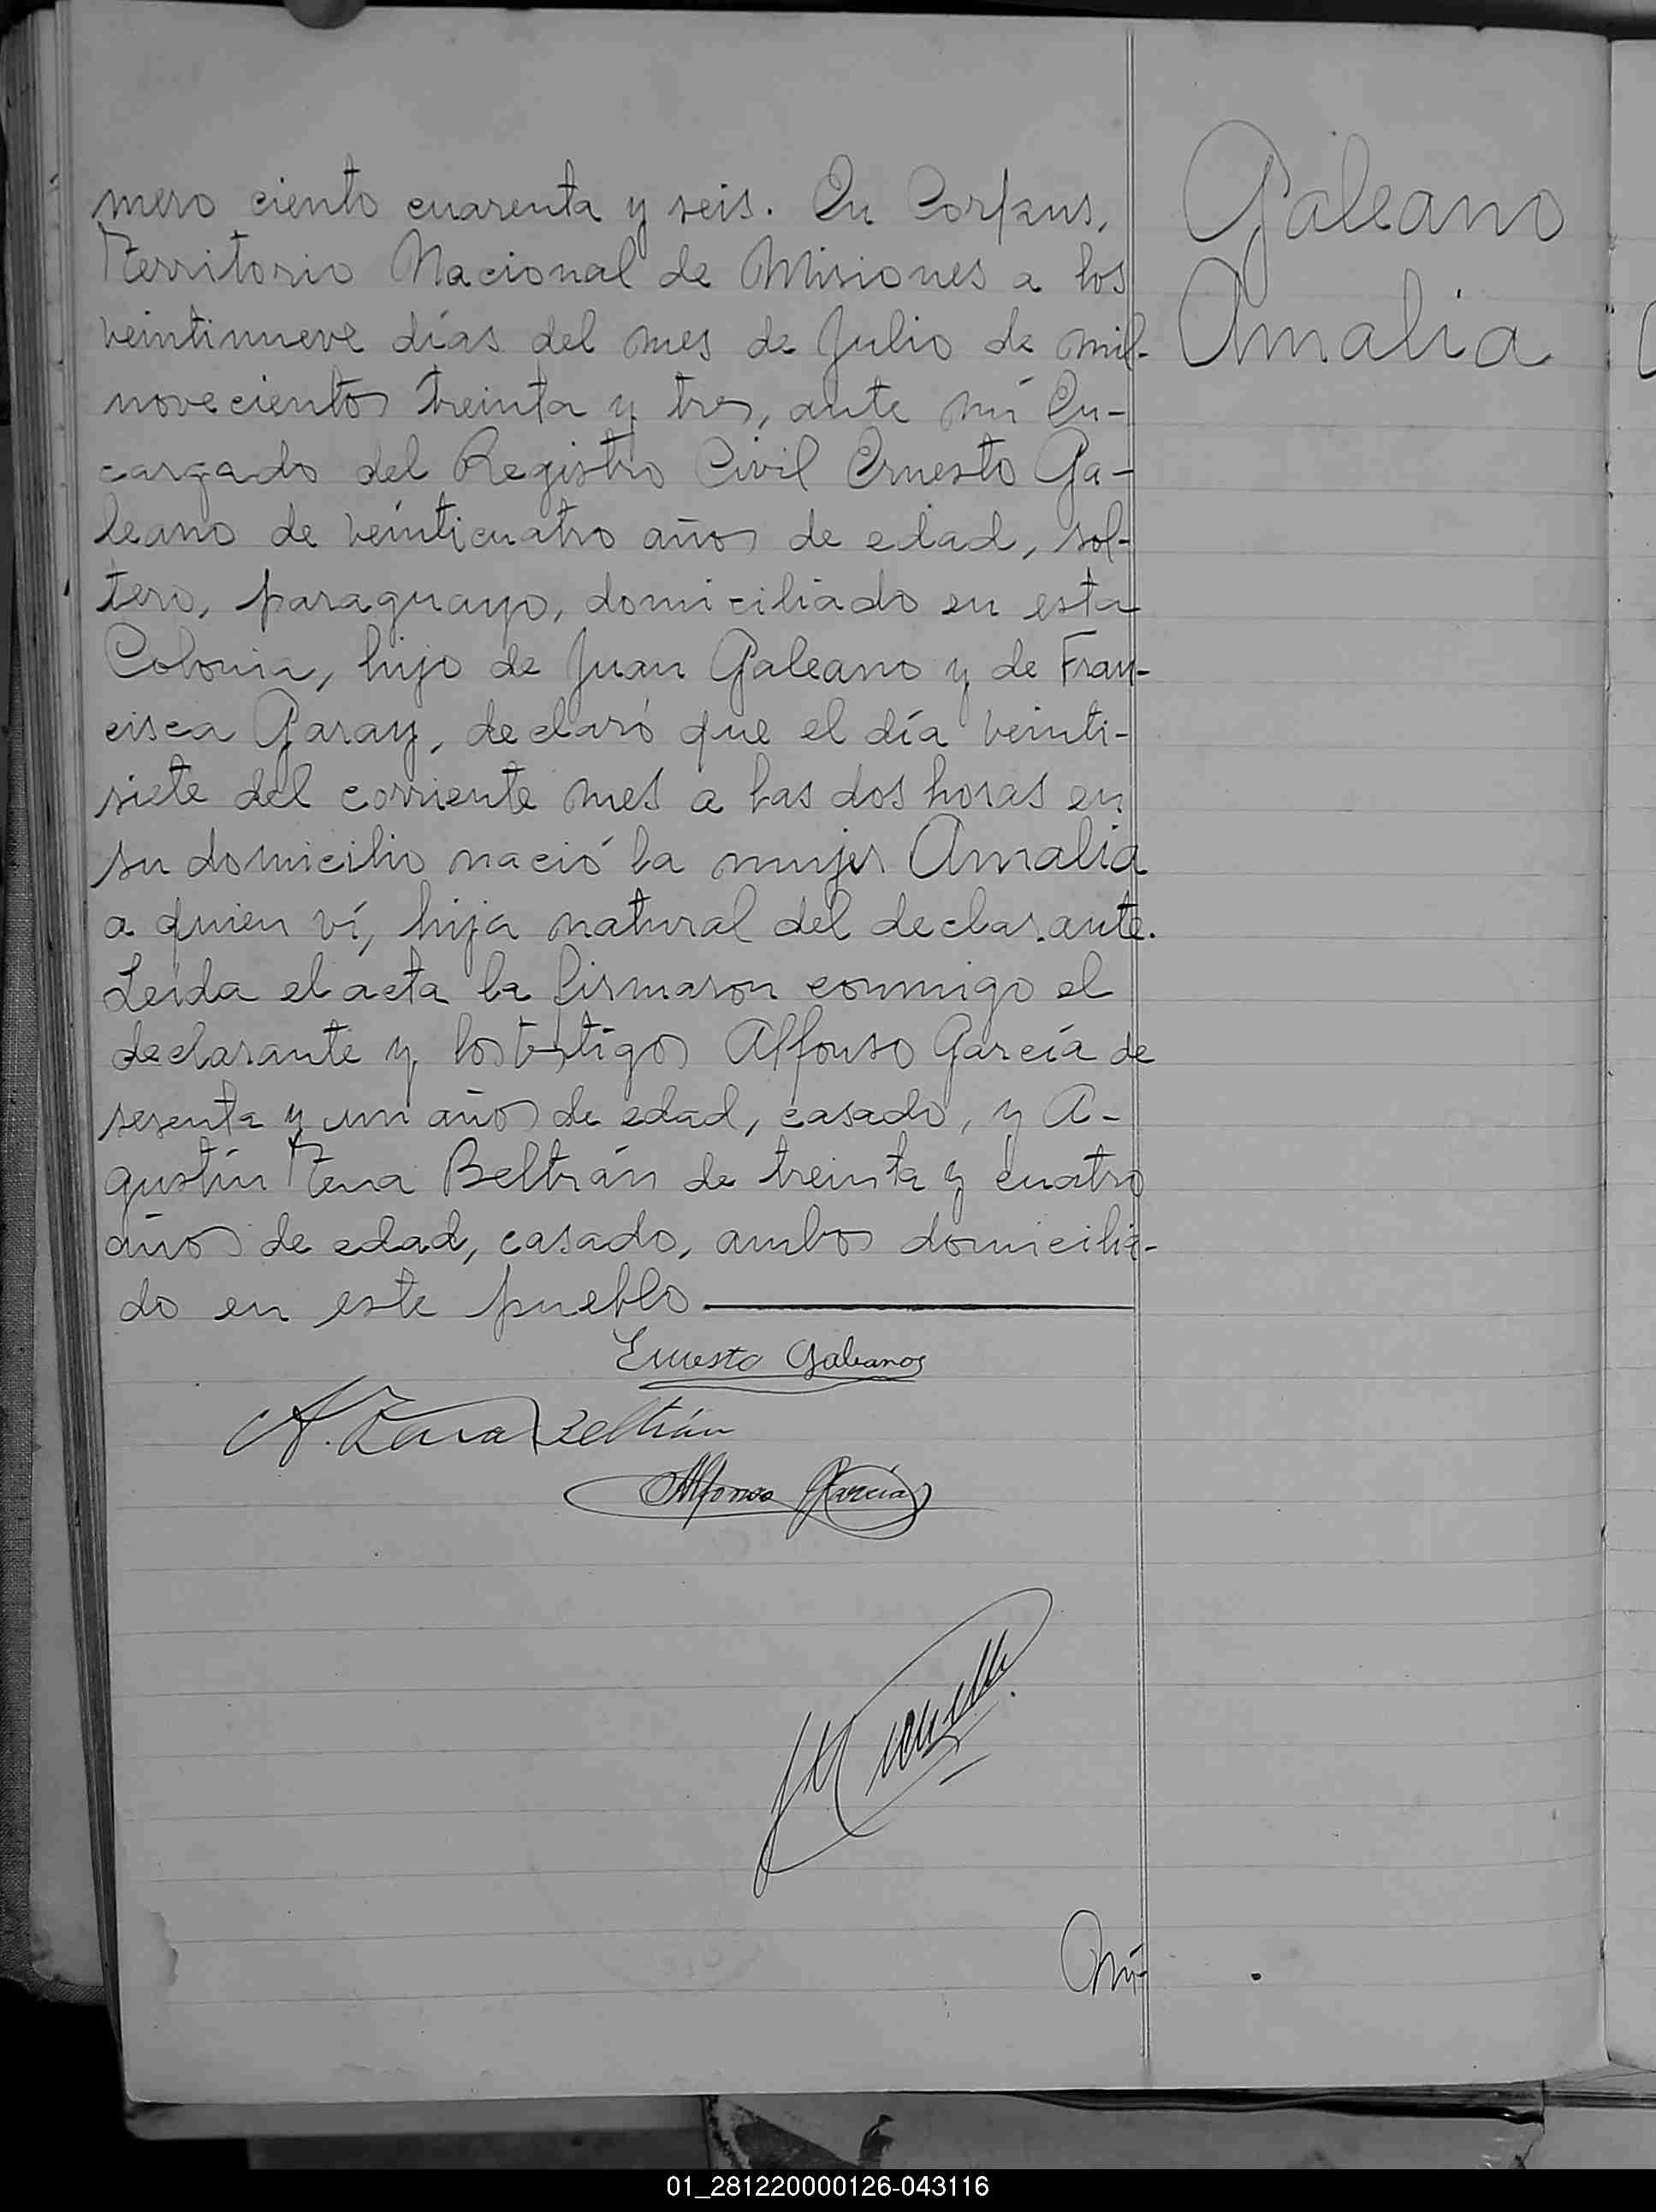 mero ciento cuarenta y seis. En Corpus,
Territorio Nacional de Misiones a los
veintinueve días del mes de Julio de mil
novecientos treinta y tres, ante mí En-
cargado del Registro Civil Ernesto Ga-
leano de veinticuatro años de edad, sol-
tero, paraguayo, domiciliado en esta
Colonia, hijo de Juan Galeano y de Fran-
cisca Garay, declaró que el día veinti-
siete del corriente mes a las dos horas en
su domicilio nació la mujer Amalia
a quien ví, hija natural del declarante.
Leída el acta la firmaron conmigo el
declarante y los testigos Alfonso García de
sesenta y un años de edad, casado, y A-
gustín Tena Beltrán de treinta y cuatro
años de edad, casado, ambos domicilia-
do en este pueblo
Galeano
Amalia
Ernesto Galeanos
A. Tena Beltrán
Alfonso García
Nú-
01_281220000126-043116